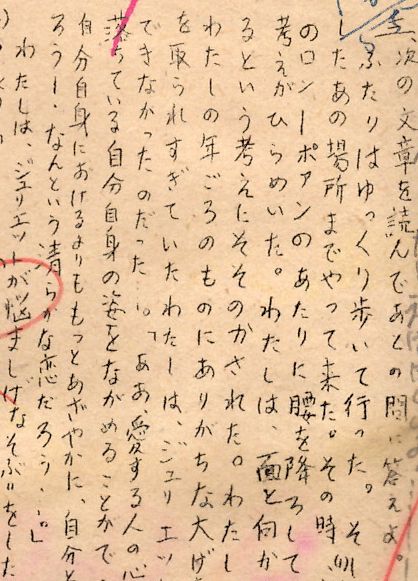 次の文章を読んであとの問に答えよ。
ふたりはゆっくり歩いて行った。そ
たあの場所までやって来た。その時
のロン＝ポアンのあたりに腰を降ろして
考えがひらめいた。わたしは、面と向か
るという考えにそそのかされた。わたし
わたしの年ごろのものにありがちな大げ
を取られすぎていたわたしは、ジュリエッ
できなかったのだった…。「ああ、愛する人の心
落ちている自分自身の姿をながめることがで
自分自身におけるよりももっとあざやかに、自分
ろう！なんという清らかな恋だろう…。」
わたしは、ジュリエットが悩ましげなそぶりをした